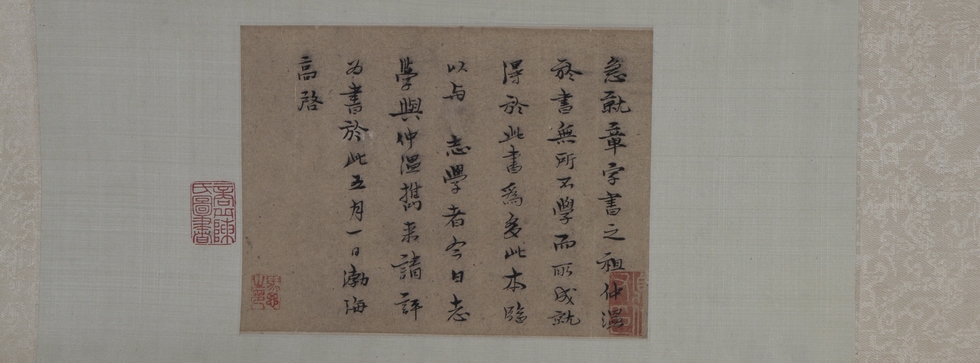 急就章字書之祖仲温
於書無所不學而所成就
得於此書為多此本臨
以与志學者今日志
學與仲温携来請評
為書於此五月一日渤海
高啓